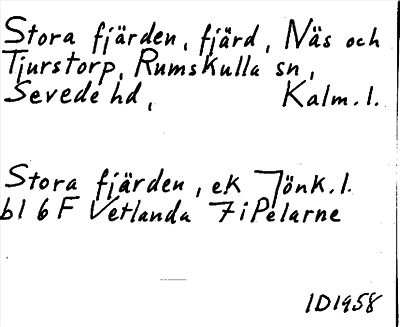 Stora fjärden, fjärd, Näs och
Tjurstorp, Rumskulla sn,
Sevede hd, Kalm. l.
Stora fjärden, ek Jönk. l.
bl 6 F Vetlanda 7 i Pelarne
ID1958